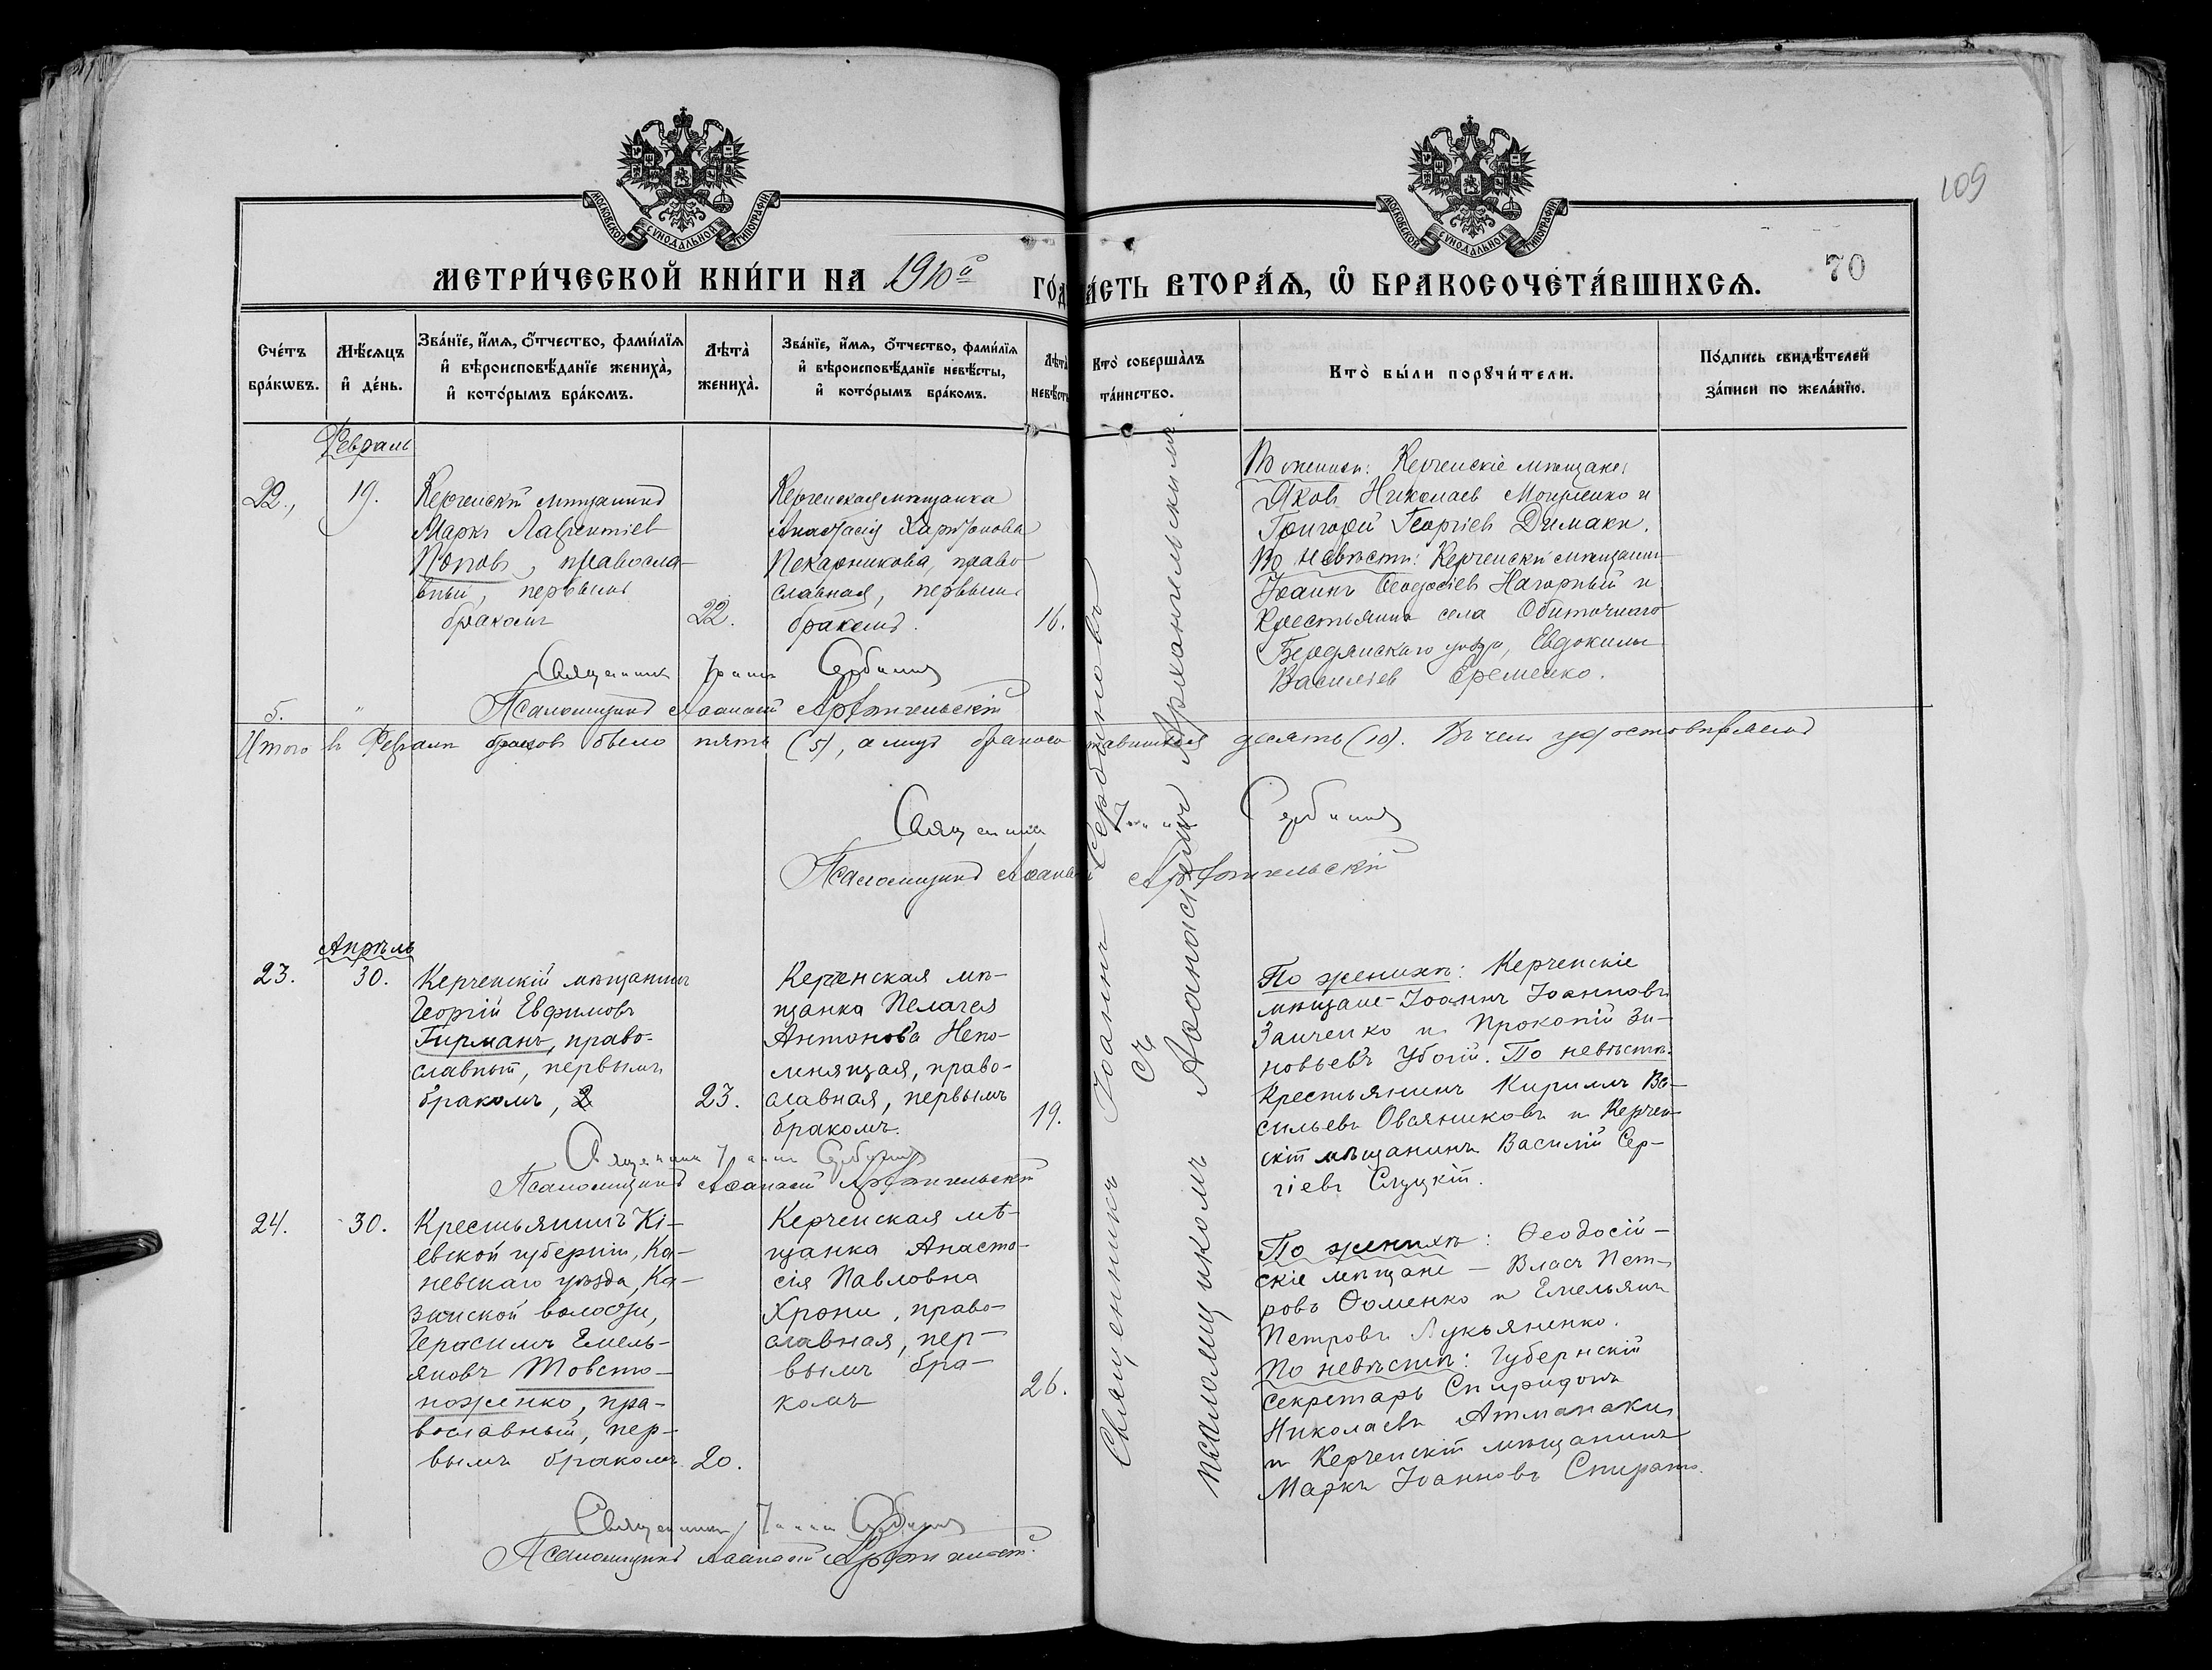 109
МОСКОВСКОЙ СѴНОДАЛЬНОЙ ТИПОГРАФІИ
МОСКОВСКОЙ СѴНОДАЛЬНОЙ ТИПОГРАФІИ
МЕТРИ́ЧЕСКОЙ КНИ́ГИ НА 1910й ГО́Д
А́СТЬ ВТОРА́Ѧ, Ѽ БРАКОСОЧЕТА́ВШИХСѦ.
70
Сче́тъ
бра́кѡвъ.
Мѣ́сѧцъ
и҆ де́нь.
Зва́нїе, и҆́мѧ, ѻ҆́тчество, фами́лїѧ
и҆ вѣроисповѣ́данїе жениха̀,
и҆ кото́рымъ бра́комъ.
Лѣ́та
жениха̀.
Зва́нїе, и҆́мѧ, ѻ҆́тчество, фами́лїѧ
и҆ вѣроисповѣ́данїе невѣ́сты,
и҆ кото́рымъ бра́комъ.
Лѣ́та
невѣ́сты
Кто̀ соверша̀лъ
та́инство.
Кто̀ бы́ли порꙋчи́тели.
По́дпись свидѣ́телей
за́писи по жела́нїю.
Февраль
22.,
19.
Керченскій мѣщанинъ
Маркъ Лаврентіевъ
Поповъ, правосла-
вный, первымъ
бракомъ
22.
Керченская мѣщанка
Анастасія Харитонова
Пекарникова, право-
славная, первымъ
бракомъ.
16.
По женихѣ: Керченскіе мѣщане:
Яковъ Николаевъ и
Григорій Георгіевъ Димаки.
По невѣстѣ: Керченскій мѣщанин
Іоаннъ Ѳеодосіевъ Нагорный и
Крестьянинъ села Обиточнаго
Бердянскаго уѣзда, Евдокимъ
Василіевъ Еременко.
Священникъ Іоаннъ Сербиновъ
Псаломщикъ Аѳанасій Архангельскій
5. "
Итого въ Февралѣ браковъ было пять (5), а лицъ бракосо тавшихся десять (10). Въ чемъ удостовѣряемъ
Священникъ Іоаннъ Сербиновъ
Псаломщикъ Аѳанасій Архангельскій
Священникъ Іоаннъ Сербиновъ
съ
псаломщикомъ Аѳанасіемъ Архангельскимъ
Апрѣль
23.
30.
Керченскій мѣщанинъ
Георгій Евфимовъ
Гирманъ, право-
славный, первымъ
бракомъ, 2
23.
Керченская мѣ-
щанка Пелагея
Антонова Непо-
мнящая, право-
славная, первымъ
бракомъ.
19.
По женихѣ: Керченскіе
мѣщане - Іоаннъ Іоанновъ
Заиченко и Прокопій Зи-
новьевъ Убогій. По невѣстѣ:
Крестьянинъ Кириллъ Ва-
сильевъ Овсяниковъ и Керчен-
скій мѣщанинъ Василій Сер-
гіевъ Слуцкій.
Священникъ Іоаннъ Сербиновъ
Псаломщикъ Аѳанасій Архангельскій
24.
30.
Крестьянинъ Кі-
евской губерніи, Ка-
невскаго уѣзда, Ка-
зинской волости,
Герасимъ Емель-
яновъ Товсто-
ноженко, пра-
вославный, пер-
вымъ бракомъ
20.
Керченская мѣ-
щанка Анаста-
сія Павловна
Хрони, право-
славная, пер-
вымъ бра-
комъ
26.
По женихѣ: Ѳеодосій-
скіе мѣщане - Власъ Пет-
ровъ Ѳоменко и Емельянъ
Петровъ Лукьяненко.
По невѣстѣ: Губернскій
секретарь Спиридонъ
Николаевъ Атманаки
и Керченскій мѣщанинъ
Маркъ Іоанновъ
Священникъ Іоаннъ Сербиновъ
Псаломщикъ Аѳанасій Архангельскій